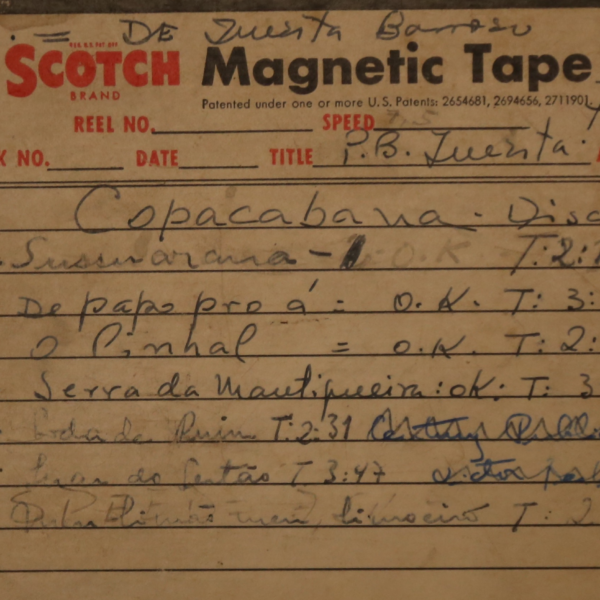 = DE Juesita Barroso
REG. U.S. PAT. OFF.
SCOTCH Magnetic Tape
BRAND
Patented under one or more U.S. Patents: 2654681, 2694656, 2711901,
REEL NO. SPEED
K NO. DATE TITLE P.B. Juesita.
Copacabana - Disc
Sussuarana - T: 2:
De papo pro á = O.K. T: 3:
O Pinhal = O.K. T: 2:
Serra da Mantiqueira: OK: T: 3
T: 2:31
do Sertão T 3:47
meu limoeiro T: 2